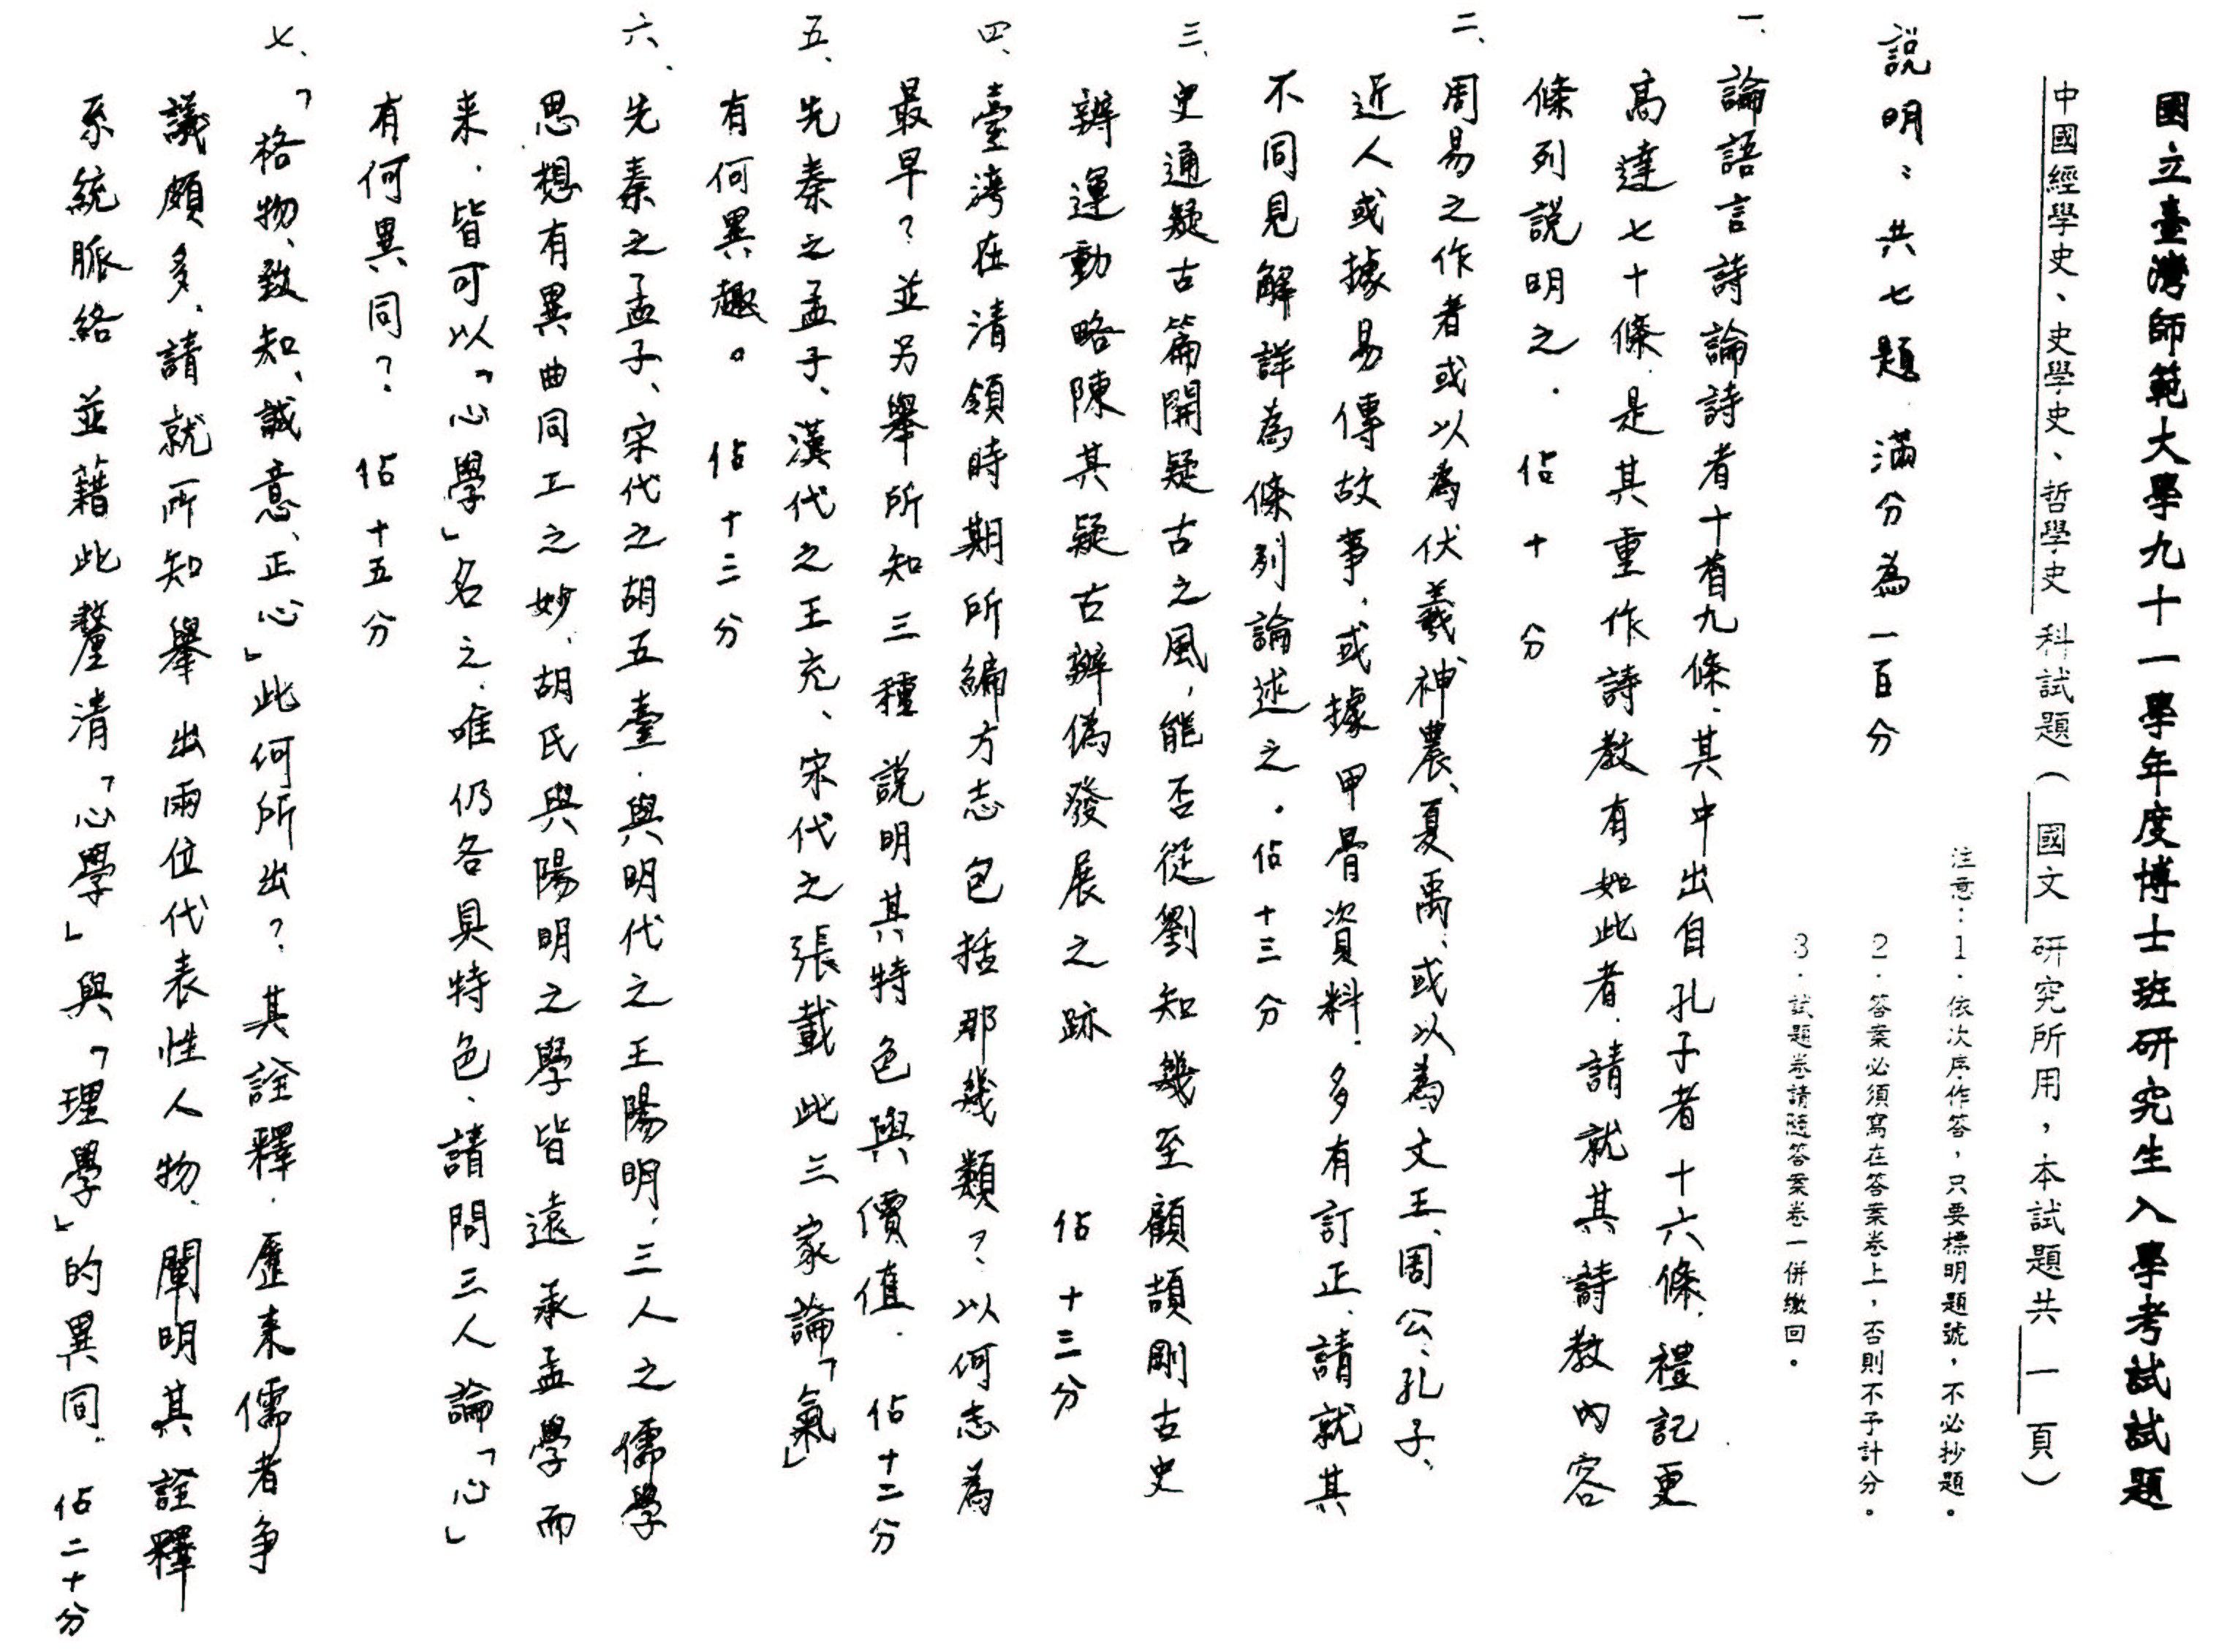 國立臺灣師範大學九十一學年度博士班研究生入學考試試題
中國經學史、史學史、哲學史科試題(國文研究所用,本試題共一頁)
注意:1.依次序作答,只要標明題號,不必抄題。
2.答案必須寫在答案卷上,否則不予計分。
3.試題卷請隨答案卷一併繳回。
說明:共七題.滿分為一百分
一、論語言詩論詩者十有九條.其中出自孔子者十六條.禮記更
高達七十條.是其重作詩教有如此者.請就其詩教內容
條列說明之.佔十分
二、周易之作者或以為伏羲神農、夏禹、或以為文王、周公、孔子、
近人或據易傳故事、或據甲骨資料.多有訂正.請就其
不同見解詳為條列論述之.佔十三分
三、史通疑古篇開疑古之風,能否從劉知幾至顧頡剛古史
辨運動略陳其疑古辨偽發展之跡 佔十三分
四、臺灣在清領時期所編方志包括那幾類?以何志為
最早?並另舉所知三種說明其特色與價值.佔十二分
五、先秦之孟子、漢代之王充、宋代之張載此三家論「氣」
有何異趣。佔十三分
六、先秦之孟子、宋代之胡五臺.與明代之王陽明.三人之儒學
思想有異曲同工之妙.胡氏與陽明之學皆遠承孟學而
來.皆可以「心學」名之.唯仍各具特色.請問三人論「心」
有何異同?佔十五分
七、「格物、致知、誠意、正心」此何所出?其詮釋.歷來儒者爭
議頗多.請就所知舉出兩位代表性人物.闡明其詮釋
系統脈絡並藉此釐清「心學」與「理學」的異同.佔二十分